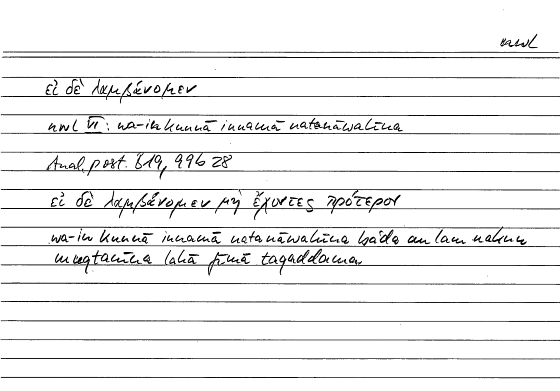 nwl
εἰ δὲ λαμβάνομεν
nwl VI: wa-in kunnā innamā natanāwaluhā
Anal. post. B 19, 99b 28
εἰ δὲ λαμβάνομεν μὴ ἔχοντες πρότερον
wa-in kunnā innamā natanāwaluhā baʿda an lam nakun
muqtanīna lahā fīmā taqaddama